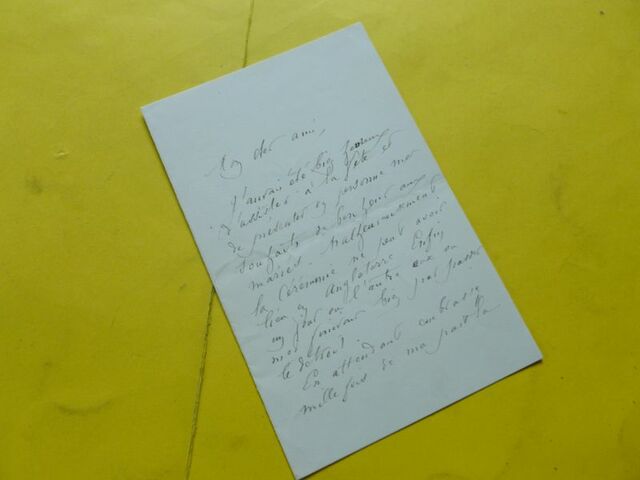 Mon cher ami,
J'aurais été bien heureux
d'assister à la fête et
de présenter en personne mes
souhaits de bonheur aux
mariés. Malheureusement
la cérémonie ne peut avoir
lieu en Angleterre. Enfin
un jour ou l'autre eux ou
moi finirons bien par passer
le détroit.
En attendant embrasse
mille fois de ma part la